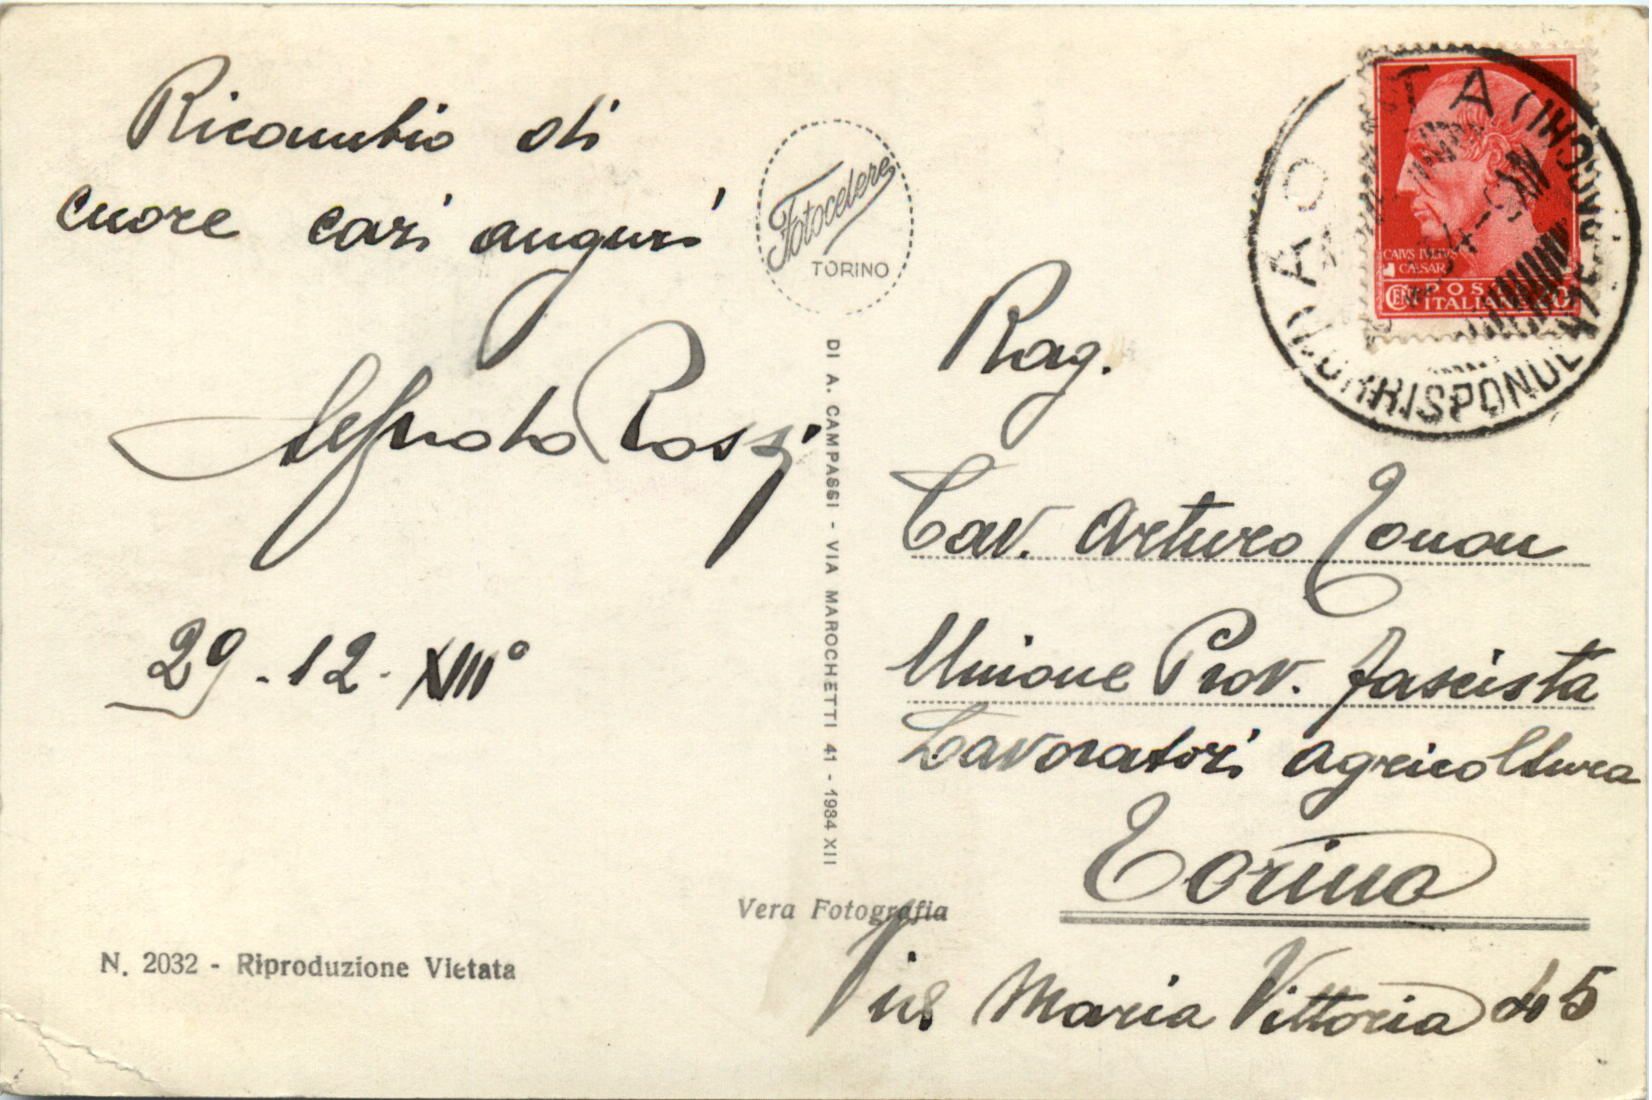 Ricambio di
cuore cari auguri
Alfredo Rossi
29.12.XIII°
Fotocelere
TORINO
DI A. CAMPASSI - VIA MAROCHETTI 41 - 1934 XII
Vera Fotografia
N. 2032 - Riproduzione Vietata
AOSTA
CORRISPONDENZE PACCHI
CAIVS IVLIVS
CAESAR
POSTE
ITALIANE
Rag.
Cav. Arturo
Unione Prov. fascista
Lavoratori agricoltura
Torino
Via Maria Vittoria 45